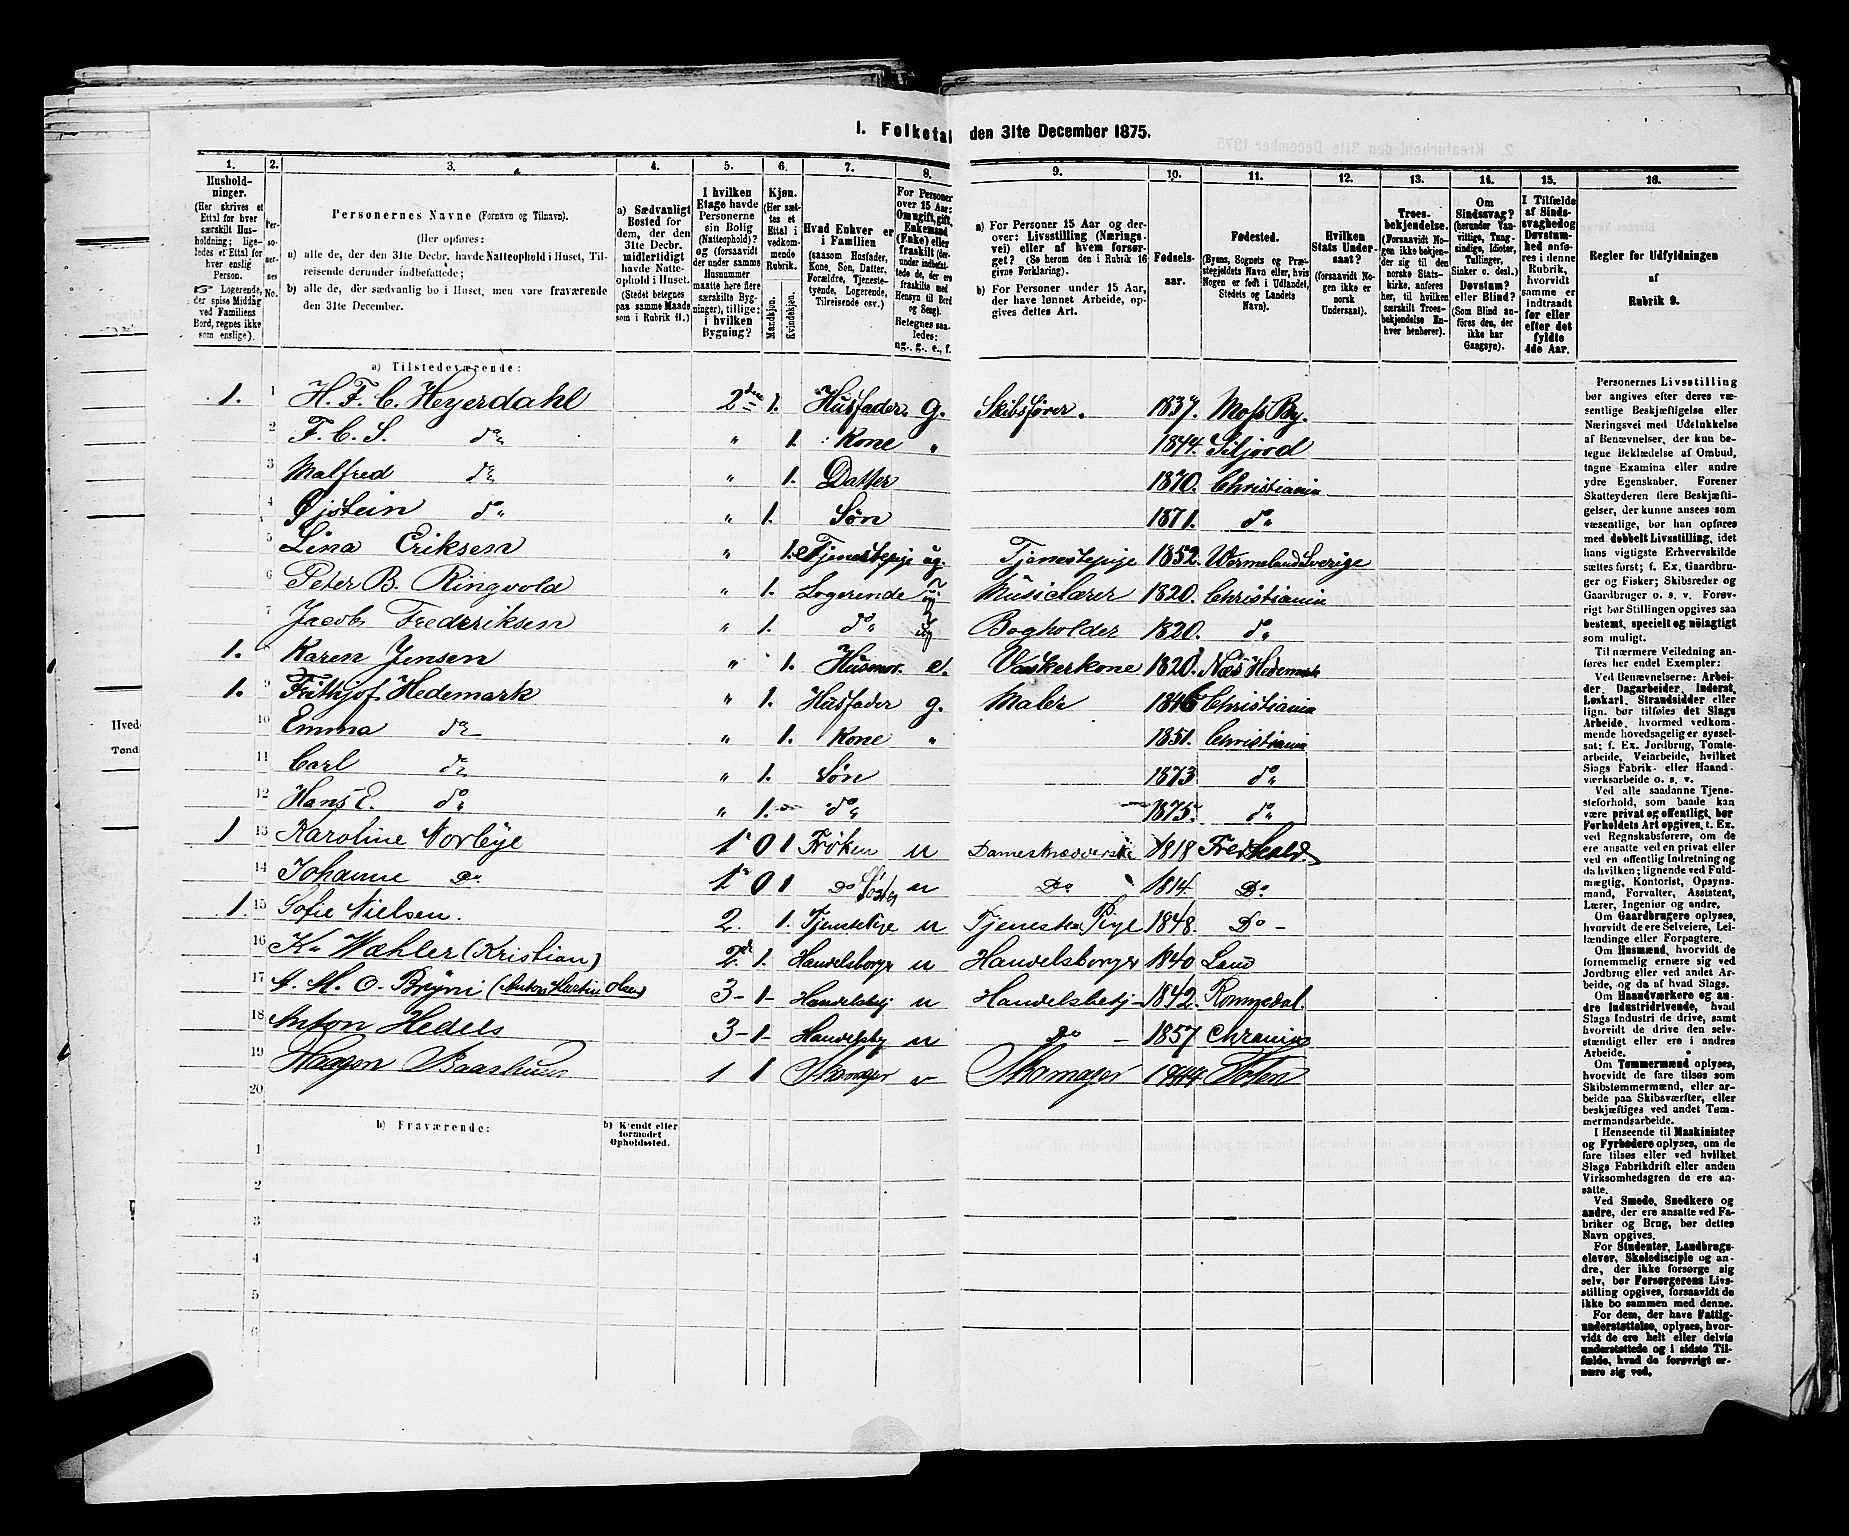 I. Folketal den 31te December 1875.
1. 2. 3. 4. 5. 6. 7. 8. 9. 10. 11. 12. 13. 14. 15. 16.
Husholdninger. (Her skrives et Ettal for hver særskilt Husholdning; ligeledes et Ettal for hver enslig Person. Logerende, der spise Middag ved Familiens Bord, regnes ikke som enslige).
Personernes No.
Personernes Navne (Fornavn og Tilnavn).
(Her opføres:
a) alle de, der den 31te Decbr. havde Natteophold i Huset, Tilreisende derunder indbefattede;
b) alle de, der sædvanlig bo i Huset, men vare fraværende den 31te December.
a) Sædvanligt Bosted for dem, der den 31te Decbr. midlertidigt havde Natteophold i Huset. (Stedet betegnes paa samme Maade som i Rubrik 11.)
I hvilken Etage havde Personerne sin Bolig (Natteophold)? og (forsaavidt der under samme Husnummer maatte høre flere særskilte Bygninger), tillige: i hvilken Bygning?
Kjøn. (Her sættes et Ettal i vedkommende Rubrik.
Mandkjøn. Kvindekjøn.
Hvad Enhver er i Familien (saasom Husfader, Kone, Søn, Datter, Forældre, Tjenestetyende, Logerende, Tilreisende osv.)
For Personer over 15 Aar: Om ugift, gift, Enkemand (Enke) eller fraskilt
Betegnes saaledes: ug., g., e., f.
a) For Personer 15 Aar og derover: Livsstilling (Næringsvei) eller af hvem forsørget? (Se herom den i Rubrik 16 givne Forklaring).
b) For Personer under 15 Aar, der have lønnet Arbeide, opgives dettes Art.
Fødselsaar.
Fødested. (Byens, Sognets og Præstegjeldets Navn eller, hvis Nogen er født i Udlandet, Stedets og Landets Navn).
Hvilken Stats Undersaat? (forsaavidt Nogen ikke er norsk Undersaat).
Troesbekjendelse. (Forsaavidt Nogen ikke bekjender sig til den norske Statskirke, anføres her, til hvilken særskilt Troesbekjendelse Enhver henhører).
Om Sindssvag? (herunder Vanvittige, Tungsindige, Idioter, Tullinger, Sinker o. desl.) Døvstum? eller Blind? (Som Blind anføres den, der ikke har Gangsyn).
I Tilfælde af Sindssvaghed og Døvstumhed anføres i denne Rubrik, hvorvidt samme er indtraadt før eller efter det fyldte 4de Aar.
Regler for Udfyldningen af Rubrik 9.
a) Tilstedeværende:
1. 1 H. F. C. Heyerdahl 2den 1. Husfader g. Skibsfører. 1837. Moss By.
2 F. C. S. do " 1. Kone " 1844. Siljord
3 Malfred do " 1. Datter 1870. Christiania
4 Øjstein do " 1. Søn 1871. do
5 Lina Eriksen " 1. Tjenestepige ug. Tjenestepige 1852. Wermeland Sverige
6 Peter B. Ringvold " 1. Logerende ug Musiclærer 1820. Christiania
7 Jacob Frederiksen " 1. do ug Bogholder 1820. do
1. Karen Jensen " 1. Husmor. e. Vaskerkone 1820. Næs Hedemark
1. 9 Frithjof Hedemark " 1. Husfader g. Maler 1846 Christiania
10 Emma do " 1. Kone " 1851. Christiania
11 Carl do " 1. Søn 1873 do
12 Hans E. do " 1. do 1875. do
1 13 Karoline Norbye 1 0 1 Frøken u Dameskrædderske 1818 Fredhald
14 Johanne Do 1 0 1 Do Søster u Do 1814. Do
1. 15 Sofie Nielsen. 2. 1. Tjenstepige u Tjeneste Pige 1848. Do
16 Kn Wæhler (Kristian) 2de 1. Handelsborger u Handelsborger 1840 Land
17 A. M. O. Bryni (Anton Martin Olsen) 3 1 Handelsbetj u Handelsbetj 1842. Rommedal.
18 Anton Hedels 3 1 Handelsbtj u Do 1857. Chrania
19 Haagen Baashuus 1 1 Skomager u Skomager 1844 Toten
20
b) Fraværende:
b) Kjendt eller formodet Opholdssted.
1
2
3
4
5
6
Personernes Livsstilling bør angives efter deres væsentlige Beskjæftigelse eller Næringsvei med Udelukkelse af Benævnelser, der kun betegne Beklædelse af Ombud, tagne Examina eller andre ydre Egenskaber. Forener Skatteyderen flere Beskjæftigelser, der kunne ansees som væsentlige, bør han opføres med dobbelt Livsstilling, idet hans vigtigste Erhvervskilde sættes først; f. Ex. Gaardbruger og Fisker; Skibsreder og Gaardbruger o. s. v. Forøvrigt bør Stillingen opgives saa bestemt, specielt og nöiagtigt som muligt.
Til nærmere Veiledning anføres her endel Exempler:
Ved Benævnelserne: Arbeider, Dagarbeider, Inderst, Løskarl, Strandsidder eller lign. bør tilføies det Slags Arbeide, hvormed vedkommende hovedsagelig er sysselsat; f. Ex. Jordbrug, Tomtearbeide, Veiarbeide, hvilket Slags Fabrik- eller Haandværksarbeide o. s. v.
Ved alle saadanne Tjenesteforhold, som baade kan være privat og offentligt, bør Forholdets Art opgives, t. Ex. ved Regnskabsførere, om de ere ansatte ved en privat eller ved en offentlig Indretning og da hvilken; lignende ved Fuldmægtig, Kontorist, Opsynsmand, Forvalter, Assistent, Lærer, Ingeniør og andre.
Om Gaardbrugere oplyses, hvorvidt de ere Selveiere, Leilændinge eller Forpagtere.
Om Husmænd, hvorvidt de fornemmelig ernære sig ved Jordbrug eller ved andet Arbeide, og da af hvad Slags.
Om Haandværkere og andre Industridrivende, hvad Slags Industri de drive, samt hvorvidt de drive den selvstændigt eller ere i andres Arbeide.
Om Tømmermænd oplyses, hvorvidt de fare tilsøs som Skibstømmermænd, eller arbeide paa Skibsværfter, eller beskjæftiges ved andet Tømmermandsarbeide.
I Henseende til Maskinister og Fyrbødere oplyses, om de fare tilsøs eller ved hvilket Slags Fabrikdrift eller anden Virksomhedsgren de ere ansatte.
Ved Smede, Snedkere og andre, der ere ansatte ved Fabriker og Brug, bør dettes Navn opgives.
For Studenter, Landbrugselever, Skoledisciple og andre, der ikke forsørge sig selv, bør Forsørgerens Livsstilling opgives, forsaavidt de ikke bo sammen med denne.
For dem, der have Fattigunderstøttelse, oplyses, hvorvidt de ere helt eller delvis understøttede og i sidste Tilfælde, hvad de forøvrigt ernære sig ved.